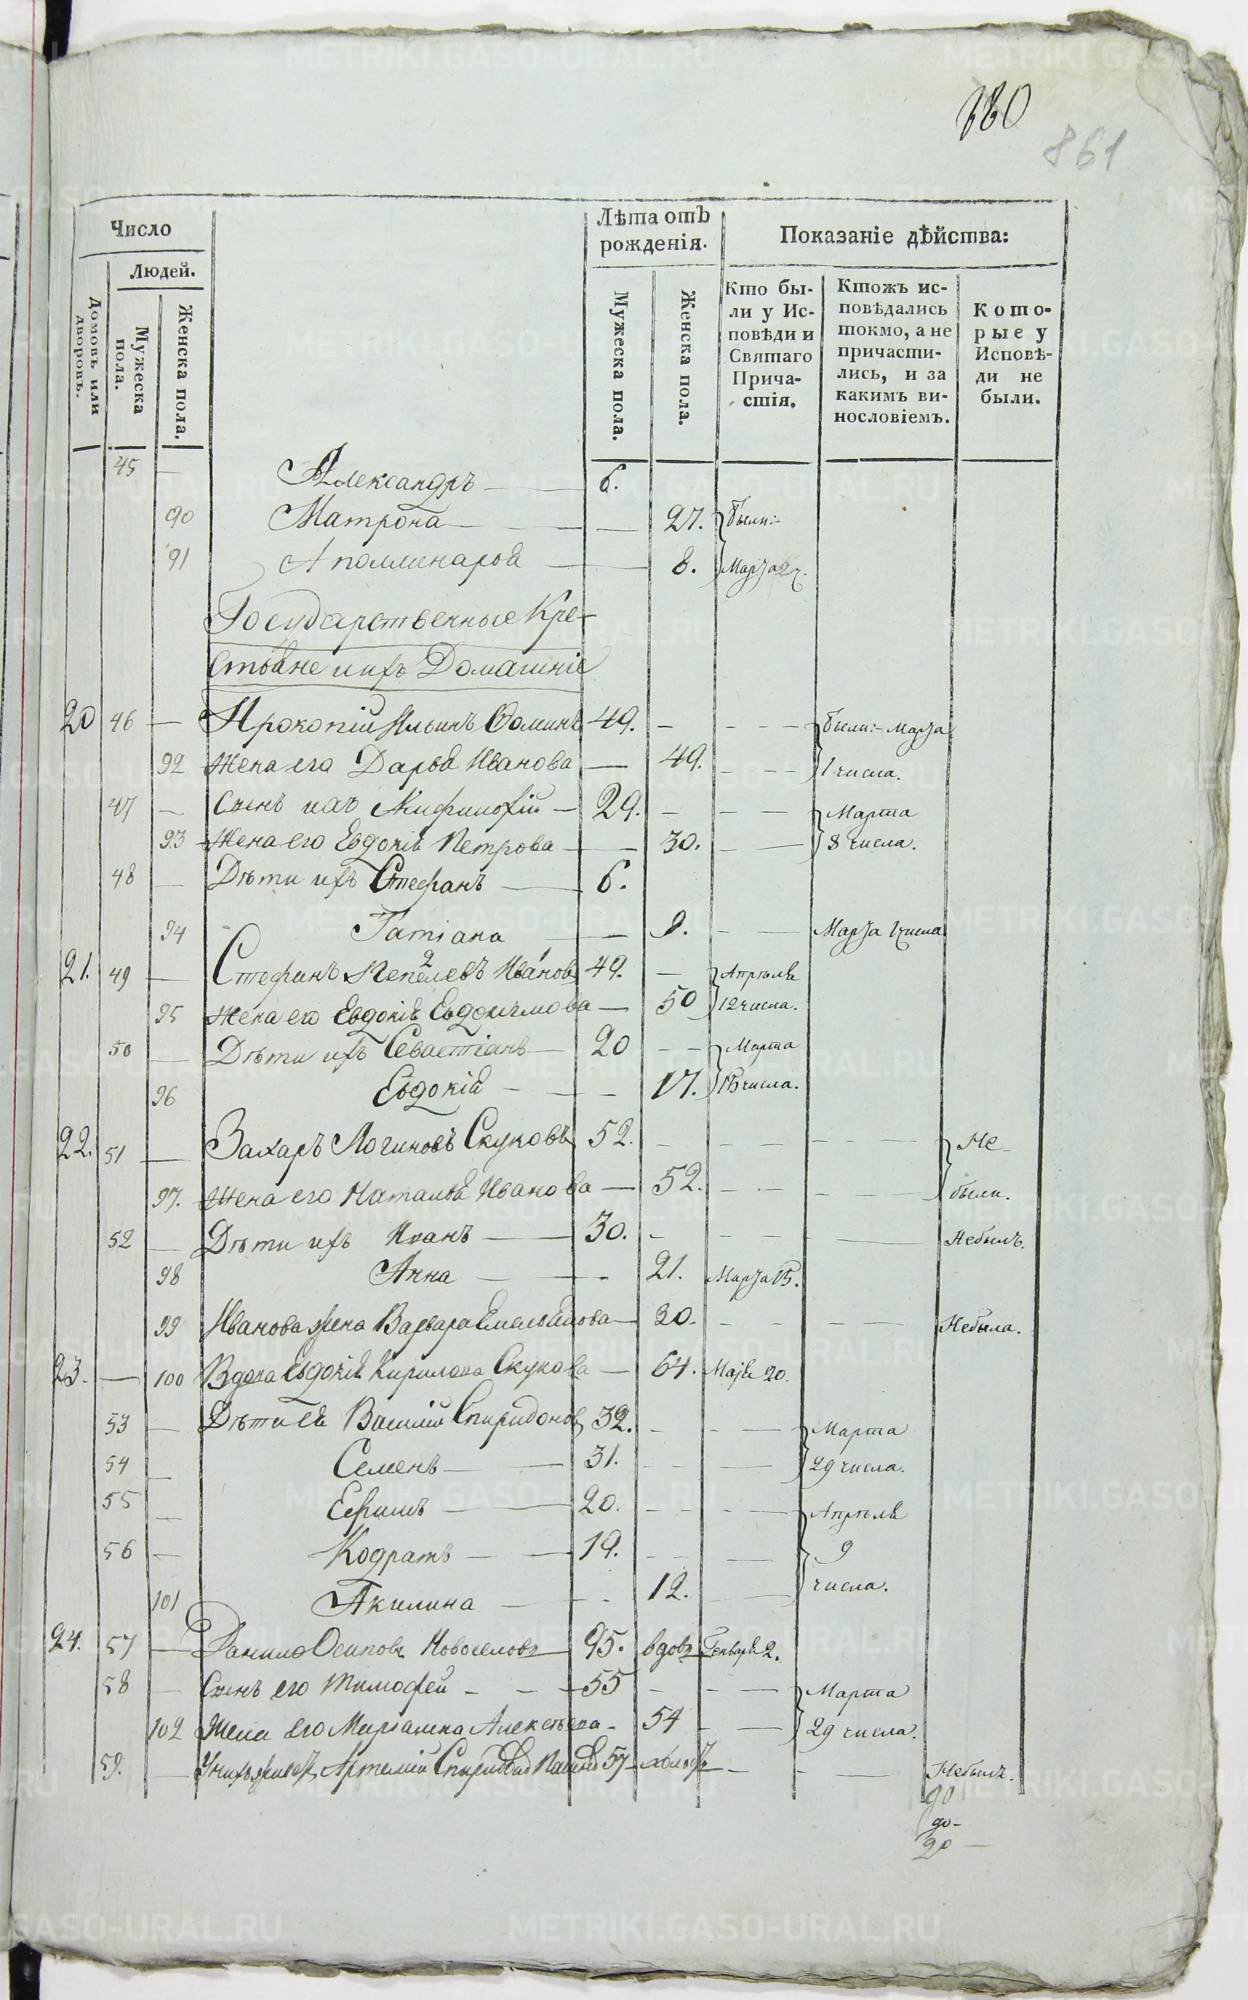 880
861
Число
Людей.
Домовъ или дворовъ.
Мужеска пола.
Женска пола.
Лѣта отъ рожденія.
Мужеска пола.
Женска пола.
Показаніе дѣйства:
Кто бы-
ли у Ис-
повѣди и
Святаго
Прича-
стія.
Ктожъ ис-
повѣдались
токмо, а не
причасти-
лись, и за
какимъ ви-
нословіемъ.
Кото-
рые у
Исповѣ-
ди не
были.
45 — Александръ — 6.
90 Матрона — — 27. были:-
91 Аполлинарія — 8. Марта 27.
Государственные Кре-
стьяне и ихъ Домашніе
20 46 — Прокопій Ильинъ Фоминъ 49. — — — были:- Марта
92 Жена его Дарья Иванова — 49. — — 1 числа.
47 — Сынъ ихъ — 29. — — — Марта
93 Жена его Евдокія Петрова — 30. — — 8 числа.
48 — Дѣти ихъ Стефанъ — 6.
94 Татіана — — 9. — — Марта 1 числа
21. 49 — Стефанъ Пепелевъ Ивановъ 49. — Апрѣля
95 Жена его Евдокія Евдокимова — 50 12 числа.
50 — Дѣти ихъ Севастіанъ — 20 — — Марта
96 Евдокія — — — 17. 15 числа.
22. 51 — Захаръ Логиновъ Скуковъ 52. — — — — — Не-
97. Жена его Наталья Иванова — 52. — — — — были.
52 — Дѣти ихъ Иванъ — 30. — — — — — Небылъ.
98 Анна — — — 21. Марта 15.
99 Иванова жена Варвара Емельянова — 30. — — — — — Небыла.
23. — 100 Вдова Евдокія Кирилова Скукова — 64. Маія 20.
53 — Дѣти ея Василій Спиридоновъ 32. — — — Марта
54 — Семенъ — — 31. — — — 29 числа.
55 — Ефимъ — — 20. — — — Апрѣля
56 — Кодратъ — — 19. — — — 9
101 Акилина — — — 12. — — числа.
24. 57 — Данило Осиповъ Новоселовъ 95. вдовъ Генваря 2.
58 — Сынъ его Тимофей — — — 55 — — — Марта
102 Жена его Маріамна Алексѣева — 54 — — 29 числа.
59. — У нихъ живетъ Артемій 57 — — — — Небылъ.